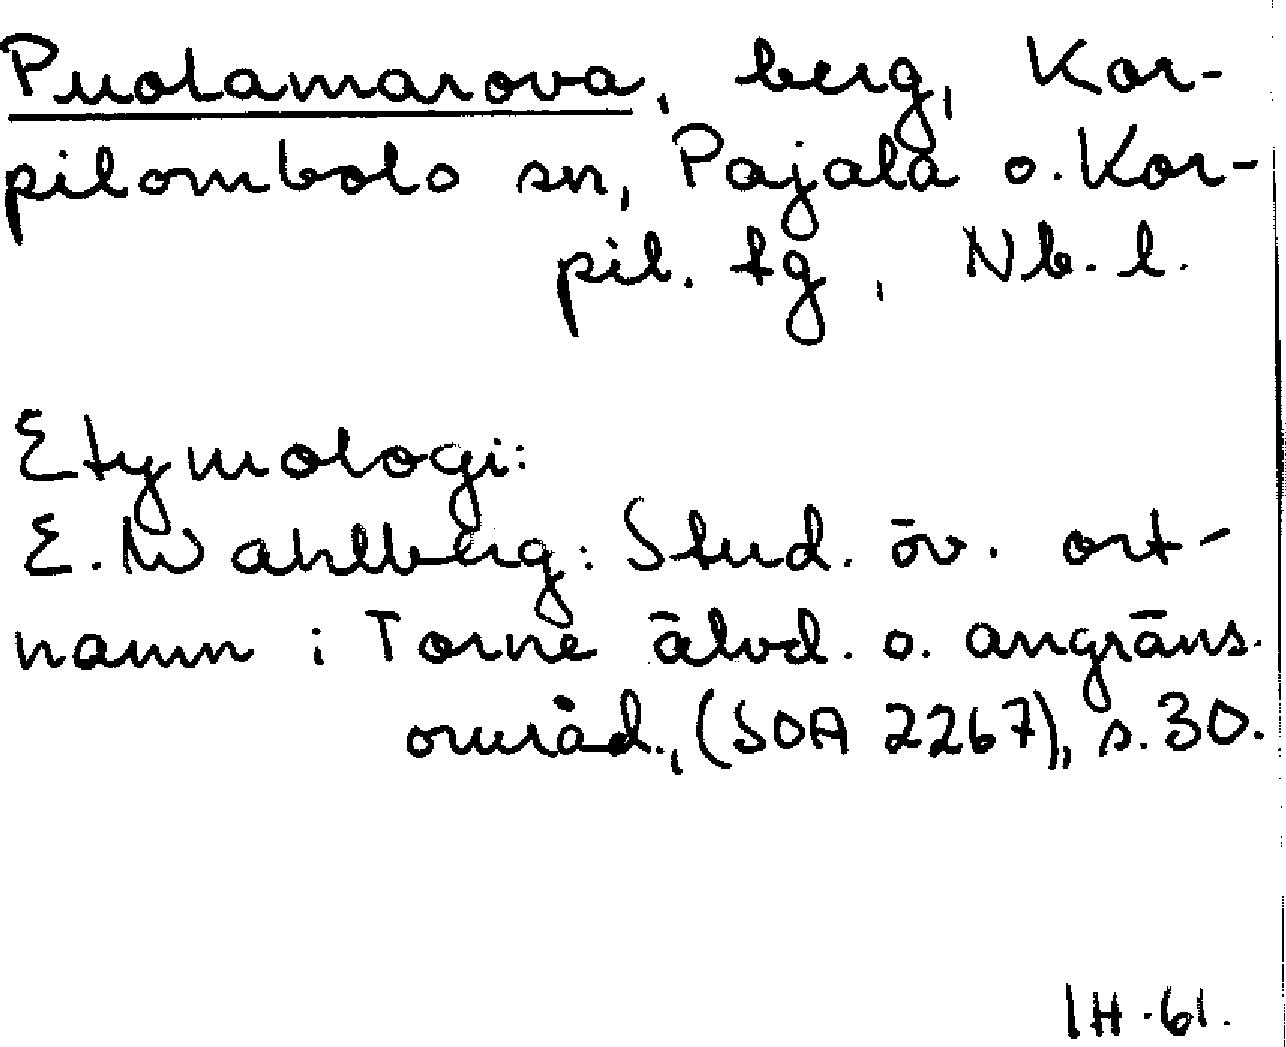 Puolamarova, berg, Kor-
pilombolo sn, Pajala o. Kor-
pil. tg, Nb. l.
Etymologi:
E. Wahlberg: Stud. öv. ort-
namn i Torne älvd. o. angräns.
områd., (SOA 2267), s. 30.
IH-61.